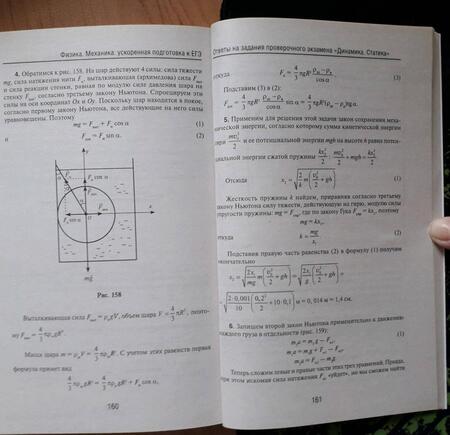 Физика. Механика: ускоренная подготовка к ЕГЭ
4. Обратимся к рис. 158. На шар действуют 4 силы: сила тяжести
mg, сила натяжения нити Fн, выталкивающая (архимедова) сила Fвыт
и сила реакции стенки, равная по модулю силе давления шара на
стенку Fдав, согласно третьему закону Ньютона. Спроецируем эти
силы на оси координат Ox и Oy. Поскольку шар находится в покое,
согласно первому закону Ньютона, все действующие на него силы
уравновешены. Поэтому
mg = Fвыт + Fн cos α (1)
и Fдав = Fн sin α. (2)
y
Fн cos α
Fн
α
Fвыт
Fн sin α
x
mg
Рис. 158
Выталкивающая сила Fвыт = ρвgV, объем шара V = 4/3 πR³, поэто-
му Fвыт = 4/3 πρвgR³.
Масса шара m = ρмV = 4/3 πρмR³. С учетом этих равенств первая
формула примет вид
4/3 πρмgR³ = 4/3 πρвgR³ + Fн cos α,
160
Ответы на задания проверочного экзамена «Динамика. Статика»
откуда Fн = 4/3 πgR³ (ρм − ρв)/cos α. (3)
Подставим (3) в (2):
Fдав = 4/3 πgR³ (ρм − ρв)/cos α sin α = 4/3 πgR³(ρм − ρв)tg α.
5. Применим для решения этой задачи закон сохранения меха-
нической энергии, согласно которому сумма кинетической энергии
гири mv₀²/2 и ее потенциальной энергии mgh на высоте h равна потен-
циальной энергии сжатой пружины kx₂²/2: mv₀²/2 + mgh = kx₂²/2.
Отсюда x₂ = √(2 m/k (v₀²/2 + gh)). (1)
Жесткость пружины k найдем, приравняв согласно третьему
закону Ньютона силу тяжести, действующую на гирю, модулю силы
упругости пружины: mg = Fупр, где по закону Гука Fупр = kx₁, поэтому
mg = kx₁,
откуда k = mg/x₁. (2)
Подставив правую часть равенства (2) в формулу (1) получим
окончательно
x₂ = √(2x₁/mg m (v₀²/2 + gh)) = √(2x₁/g (v₀²/2 + gh)) =
= √(2·0,001/10 (0,2²/2 + 10·0,1)) м = 0,014 м = 1,4 см.
6. Запишем второй закон Ньютона применительно к движению
каждого груза в отдельности (рис. 159):
m₁a = m₁g − Fн1, (1)
m₂a = m₂g + Fн1 − Fн2,
m₃a = Fн2 − m₃g.
Теперь сложим левые и правые части этих трех уравнений. Правда,
при этом искомая сила натяжения Fн1 «уйдет», но мы сможем найти
161